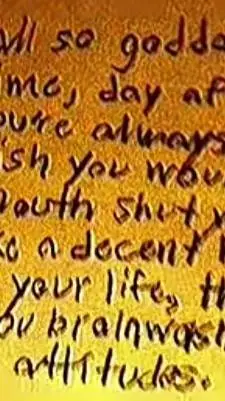 all so godda
me, day af
you're always
ish you wou
mouth shut
a decent
your life, th
ou brainwash
attitudes.